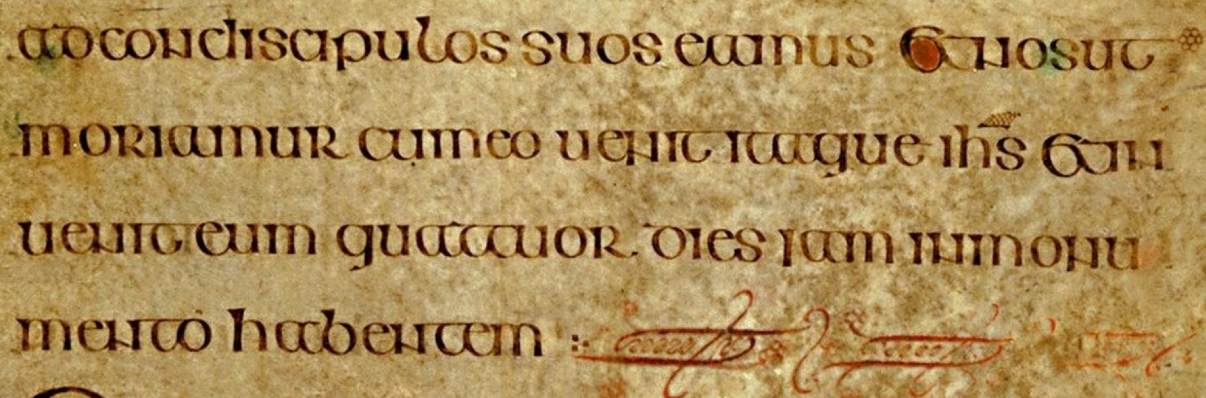 adcondiscipulos suos eamus & nosut
moriamur cumeo uenit itaque ihs & in
uenit eum quattuor dies iam inmonu
mento habentem :